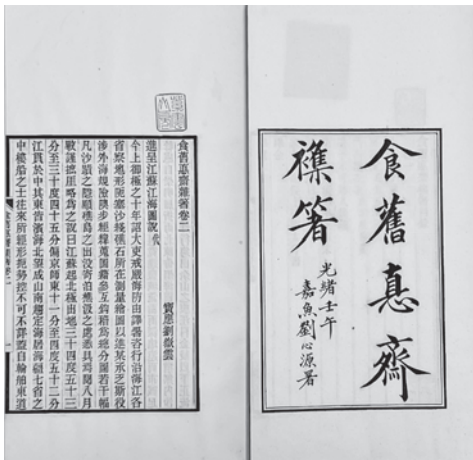 食舊悳齋
襍箸
光緒壬午
嘉魚劉心源署
食舊悳齋雜著卷二
寶應劉嶽雲
進呈江蘇江海圖說代
今上御極之十年詔大吏戒嚴海防由譯署咨行沿海江各
省察地形阨塞沙綫礁石所在測量繪圖以進某承乏斯役
涉外海覘險隩步經緯蒐圖籍參互鉤稽爲總分圖若干幅
凡沙之島之出沒寄泊樵汲之處悉具焉閱八月
謹摭厓略爲之說曰江蘇起北極出地三十四度五十三
分至三十度四十五分偏京師東十一分至四度五十二分
江貫於中其東皆濱海北望成山南趨定海居海疆七省之
中樓船之士往來所經形控不可不詳蓋自輪舶東道